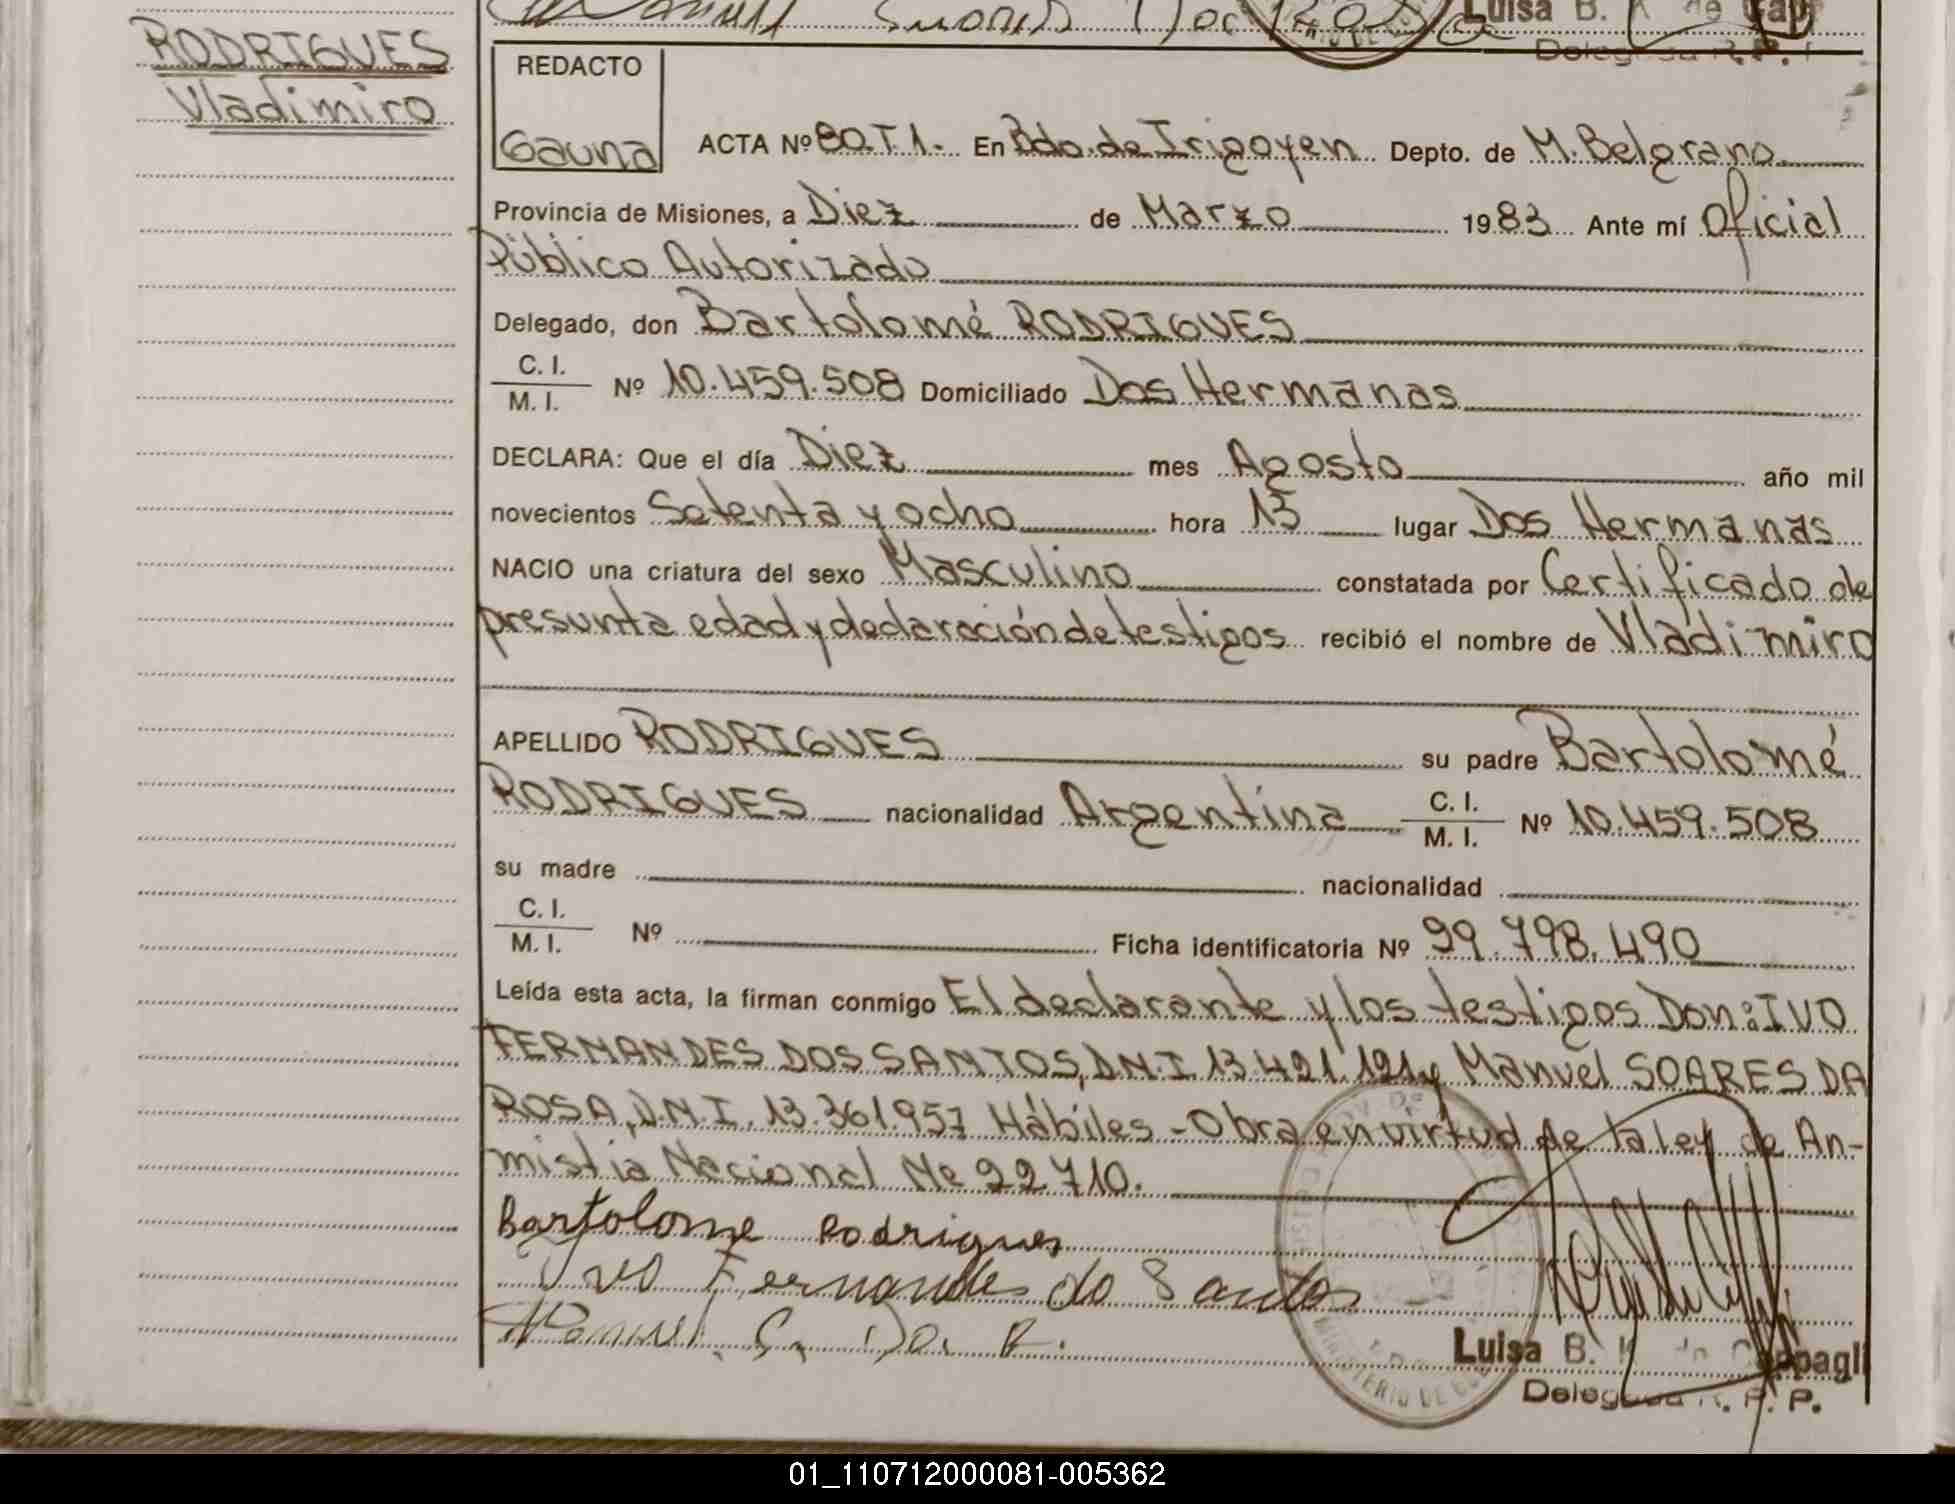 Luisa B. K. de Cap
Delegada R.P.
RODRIGUES
Vladimiro
REDACTO
Gauna
ACTA Nº 80.T1. En Bdo. de Irigoyen Depto. de M. Belgrano
Provincia de Misiones, a Diez de Marzo 1983 Ante mí Oficial
Público Autorizado
Delegado, don Bartolomé RODRIGUES
C. I.
M. I. Nº 10.459.508 Domiciliado Dos Hermanas
DECLARA: Que el día Diez mes Agosto año mil
novecientos Setenta y ocho hora 15 lugar Dos Hermanas
NACIO una criatura del sexo Masculino constatada por Certificado de
presunta edad y declaración de testigos recibió el nombre de Vladimiro
APELLIDO RODRIGUES su padre Bartolomé
RODRIGUES nacionalidad Argentina C. I. M. I. Nº 10.459.508
su madre nacionalidad
C. I.
M. I. Nº Ficha identificatoria Nº 99.798.490
Leída esta acta, la firman conmigo El declarante y los testigos Don: IVO
FERNANDES DOS SANTOS, D.N.I. 13.421.121 y Manuel SOARES DA
ROSA, D.N.I. 13.361.957 Hábiles - Obra en virtud de la ley de An-
mistia Nacional Nº 22.710.
Bartolome Rodrigues
Ivo Fernandes do Santos
Manuel. S. Da. R.
Luisa B. K. de Cappagli
Delegada R. P. P.
01_110712000081-005362